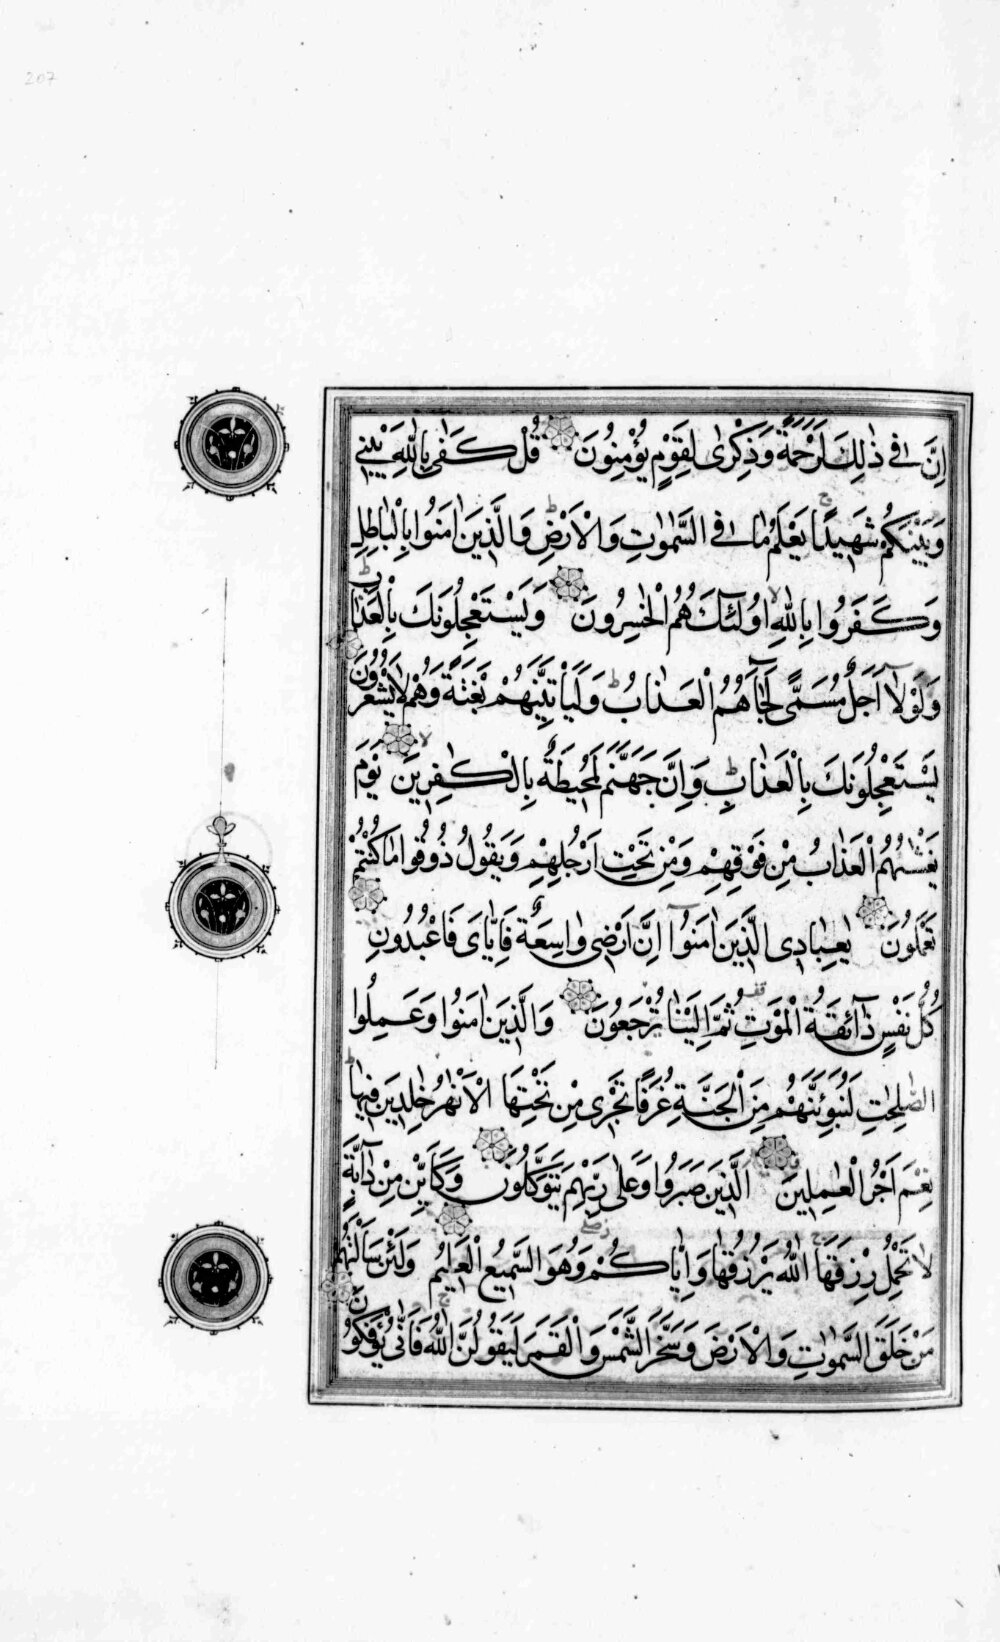 207
اِنَّ فِى ذٰلِكَ لَرَحْمَةً وَذِكْرٰى لِقَوْمٍ يُؤْمِنُونَ قُلْ كَفٰى بِاللّٰهِ بَيْنِى
وَبَيْنَكُمْ شَهِيدًا يَعْلَمُ مَا فِى السَّمٰوٰتِ وَالْاَرْضِ وَالَّذِينَ اٰمَنُوا بِالْبَاطِلِ
وَكَفَرُوا بِاللّٰهِ اُولٰٓئِكَ هُمُ الْخٰسِرُونَ وَيَسْتَعْجِلُونَكَ بِالْعَذَابِ
وَلَوْلَآ اَجَلٌ مُسَمًّى لَجَآءَهُمُ الْعَذَابُ وَلَيَأْتِيَنَّهُمْ بَغْتَةً وَهُمْ لَا يَشْعُرُونَ
يَسْتَعْجِلُونَكَ بِالْعَذَابِ وَاِنَّ جَهَنَّمَ لَمُحِيطَةٌ بِالْكٰفِرِينَ يَوْمَ
يَغْشٰيهُمُ الْعَذَابُ مِنْ فَوْقِهِمْ وَمِنْ تَحْتِ اَرْجُلِهِمْ وَيَقُولُ ذُوقُوا مَا كُنْتُمْ
تَعْمَلُونَ يٰعِبَادِىَ الَّذِينَ اٰمَنُوٓا اِنَّ اَرْضِى وَاسِعَةٌ فَاِيَّاىَ فَاعْبُدُونِ
كُلُّ نَفْسٍ ذَآئِقَةُ الْمَوْتِ ثُمَّ اِلَيْنَا تُرْجَعُونَ وَالَّذِينَ اٰمَنُوا وَعَمِلُوا
الصّٰلِحٰتِ لَنُبَوِّئَنَّهُمْ مِنَ الْجَنَّةِ غُرَفًا تَجْرِى مِنْ تَحْتِهَا الْاَنْهٰرُ خٰلِدِينَ فِيهَا
نِعْمَ اَجْرُ الْعٰمِلِينَ الَّذِينَ صَبَرُوا وَعَلٰى رَبِّهِمْ يَتَوَكَّلُونَ وَكَاَيِّنْ مِنْ دَآبَّةٍ
لَا تَحْمِلُ رِزْقَهَا اللّٰهُ يَرْزُقُهَا وَاِيَّاكُمْ وَهُوَ السَّمِيعُ الْعَلِيمُ وَلَئِنْ سَاَلْتَهُمْ
مَنْ خَلَقَ السَّمٰوٰتِ وَالْاَرْضَ وَسَخَّرَ الشَّمْسَ وَالْقَمَرَ لَيَقُولُنَّ اللّٰهُ فَاَنّٰى يُؤْفَكُونَ